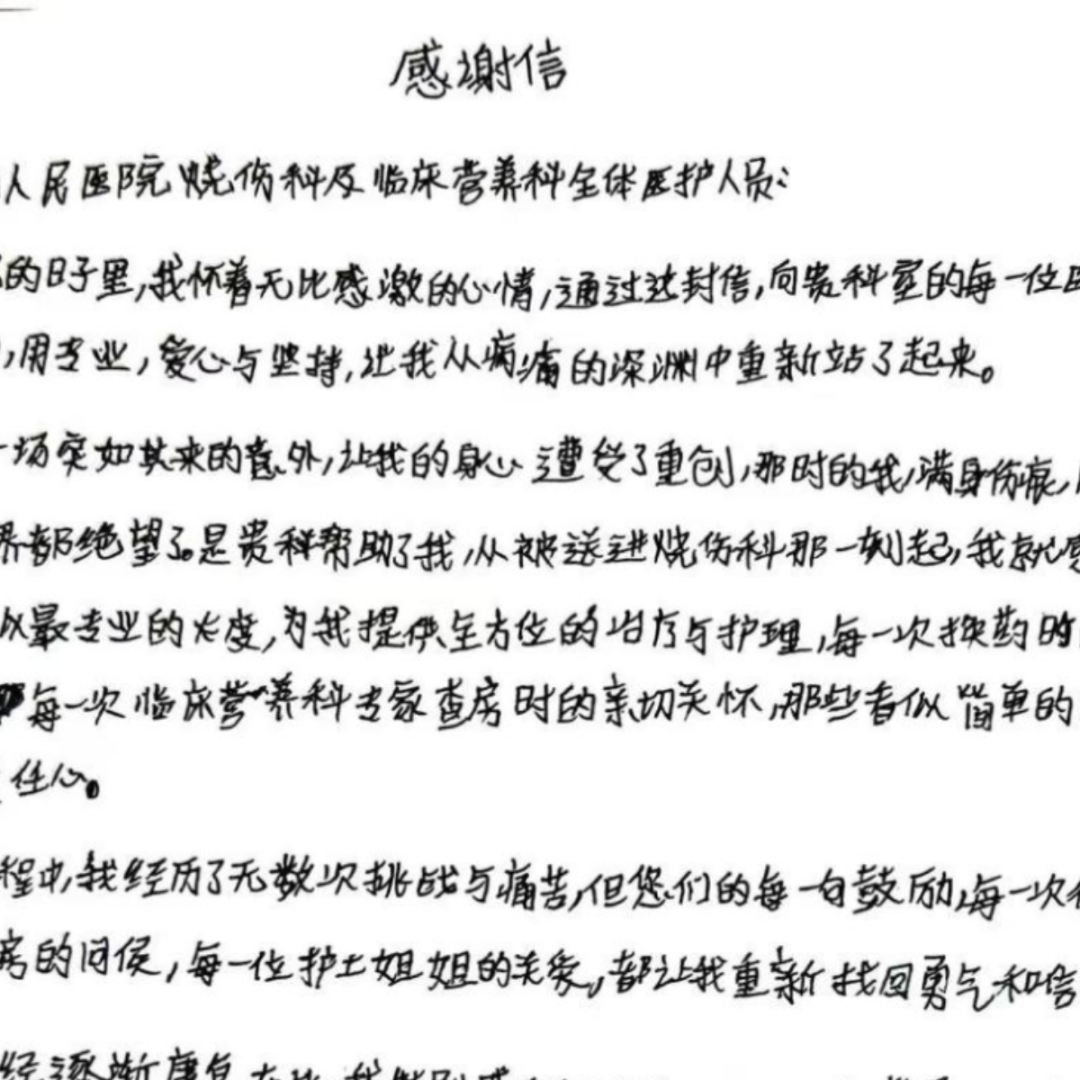 感谢信
人民医院烧伤科及临床营养科全体医护人员:
的日子里,我怀着无比感激的心情,通过这封信,向贵科室的每一位医
,用专业,爱心与坚持,让我从病痛的深渊中重新站了起来。
一场突如其来的意外,让我的身心遭受了重创,那时的我,满身伤痕,
界都绝望了。是贵科帮助了我,从被送进烧伤科那一刻起,我就
以最专业的态度,为我提供全方位的治疗与护理,每一次换药时
每一次临床营养科专家查房时的亲切关怀,那些看似简单的
任心。
程中,我经历了无数次挑战与痛苦,但您们的每一句鼓励,每一次
房的问候,每一位护士姐姐的关爱,都让我重新找回勇气和信
经逐渐康复